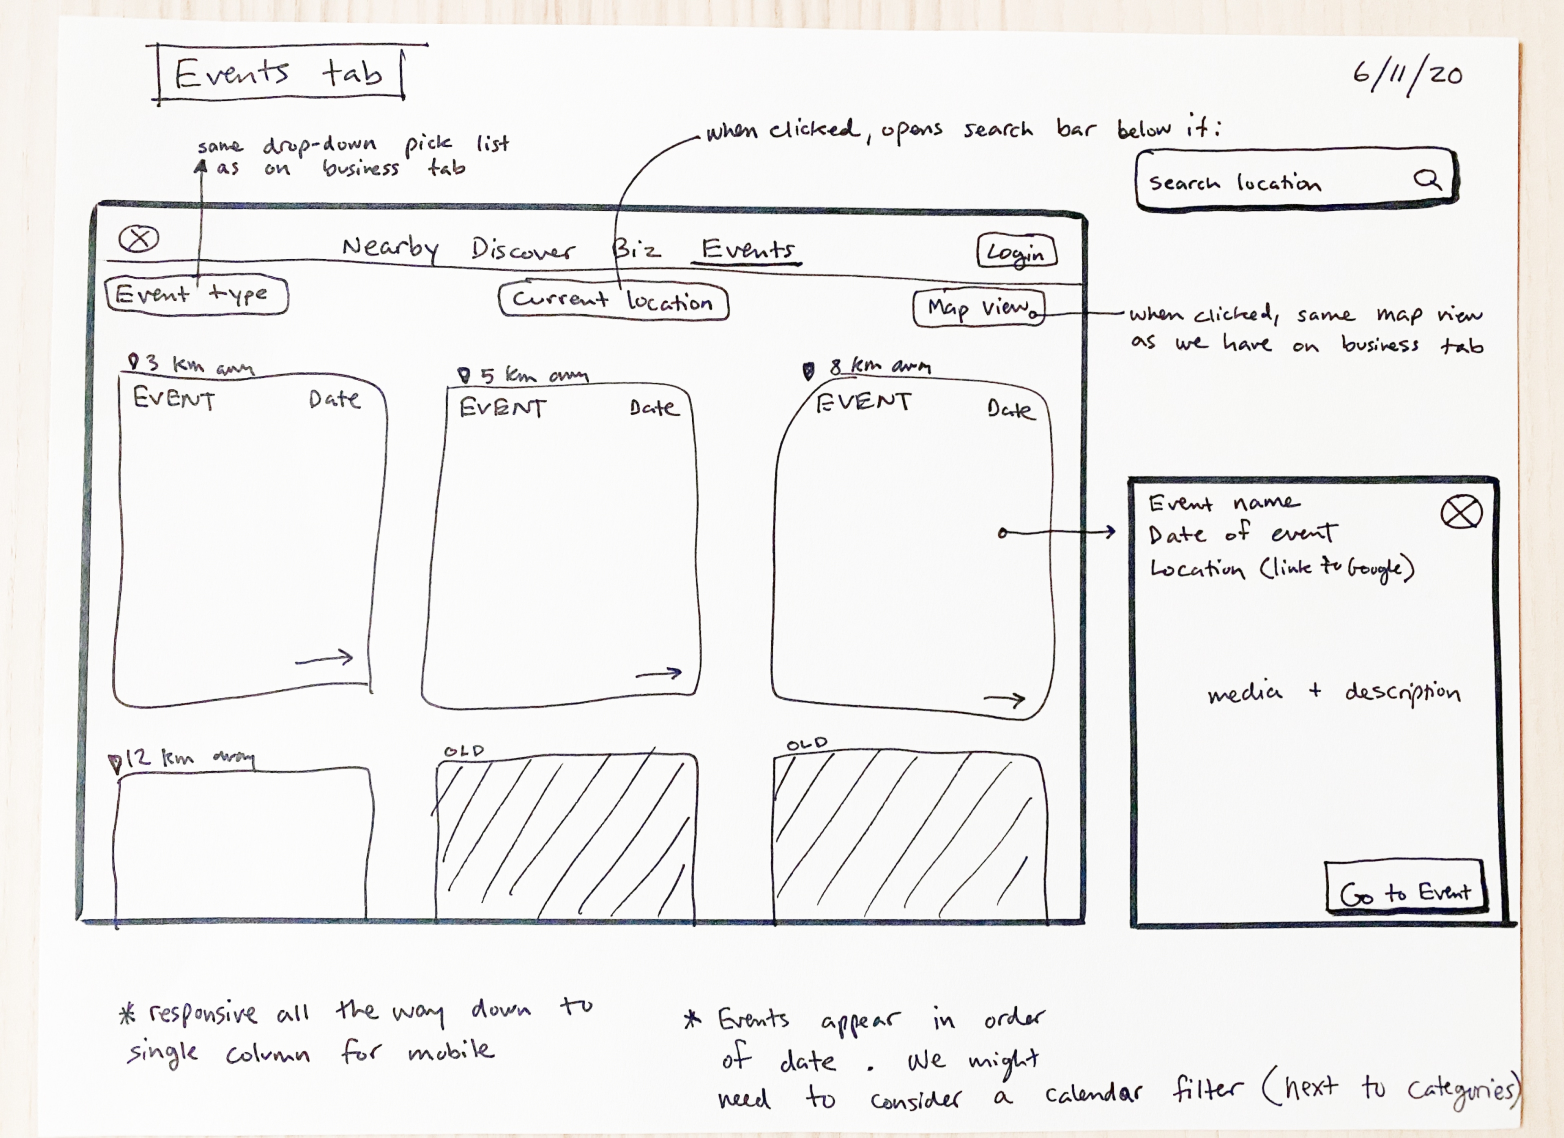 Events tab
6/11/20
same drop-down pick list
as on business tab
when clicked, opens search bar below it:
search location
Nearby Discover Biz Events
Login
Event type
Current location
Map view
when clicked, same map view
as we have on business tab
3 km away
EVENT Date
5 km away
EVENT Date
8 km away
EVENT Date
Event name
Date of event
Location (link to Google)
media + description
Go to Event
12 km away
OLD
OLD
* responsive all the way down to
single column for mobile
* Events appear in order
of date. We might
need to consider a calendar filter (next to categories)